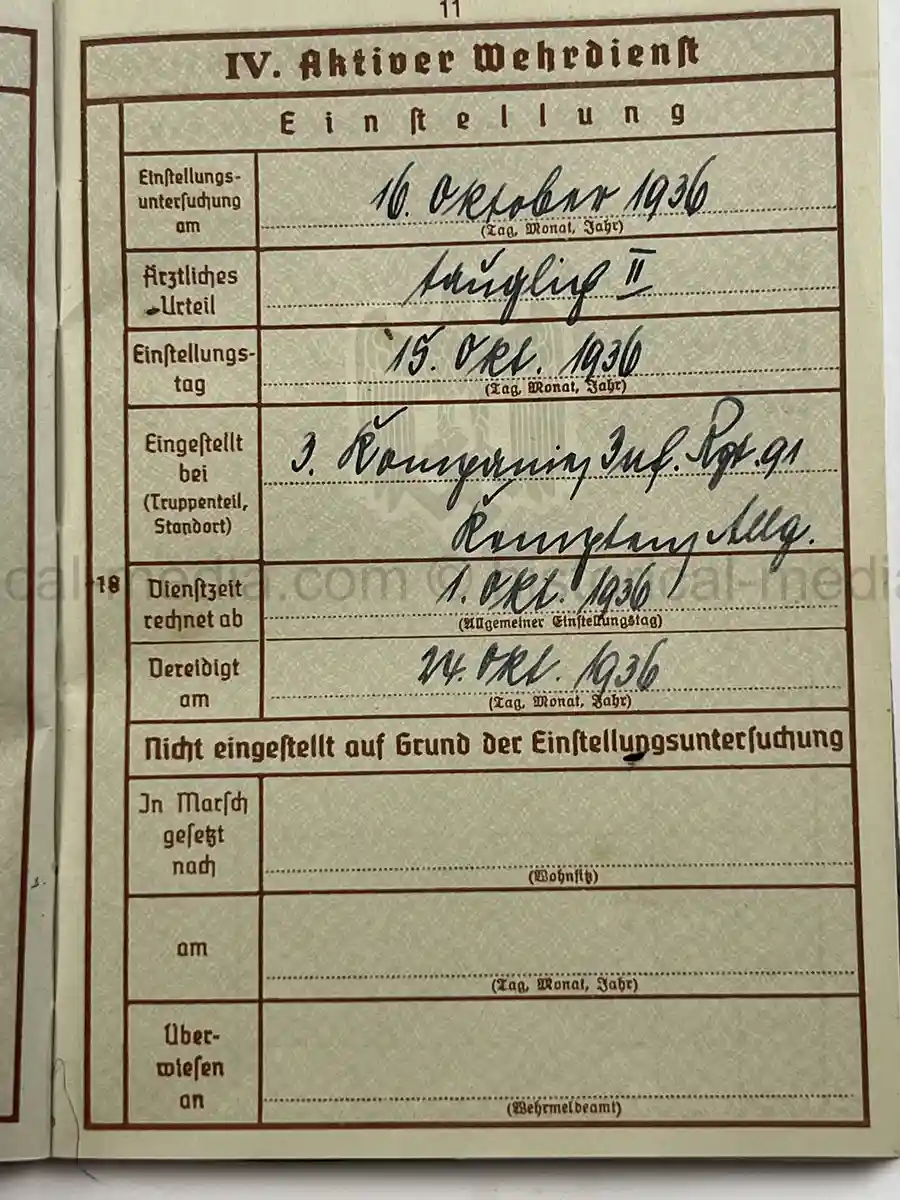 11
IV. Aktiver Wehrdienst
Einstellung
Einstellungs-
untersuchung
am
16. Oktober 1936
(Tag, Monat, Jahr)
Ärztliches
Urteil
tauglich II
Einstellungs-
tag
15. Okt. 1936
(Tag, Monat, Jahr)
Eingestellt
bei
(Truppenteil,
Standort)
3. Kompanie, Inf. Rgt. 91
Kempten, Allg.
18
Dienstzeit
rechnet ab
1. Okt. 1936
(Allgemeiner Einstellungstag)
Vereidigt
am
24. Okt. 1936
(Tag, Monat, Jahr)
Nicht eingestellt auf Grund der Einstellungsuntersuchung
In Marsch
gesetzt
nach
(Wohnsitz)
am
(Tag, Monat, Jahr)
Über-
wiesen
an
(Wehrmeldeamt)
cal-media.com © historical-media